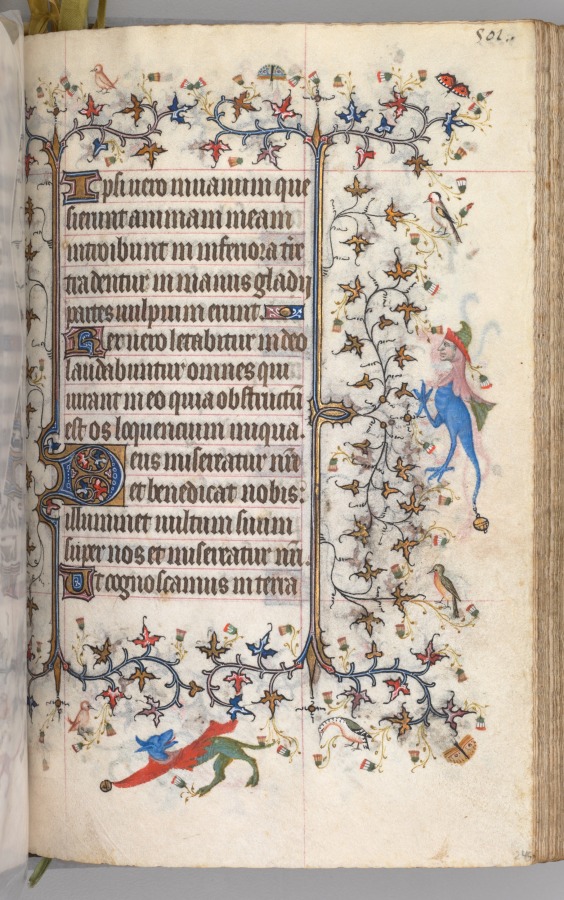 801.
Ipsi uero in uanum que
sierunt animam meam
introibunt in inferiora tre
tradentur in manus gladii
partes uulpium erunt.
Rex uero letabitur in deo
laudabuntur omnes qui
iurant in eo quia obstructū
est os loquencium iniqua.
Deus misereatur nrī
et benedicat nobis:
illuminet uultum suum
super nos et misereatur nrī.
Ut cognoscamus in terra